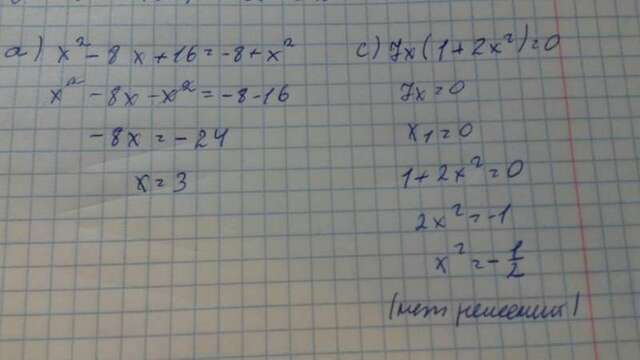 a) x² - 8x + 16 = -8 + x²
x² - 8x - x² = -8 - 16
-8x = -24
x = 3
c) 7x(1 + 2x²) = 0
7x = 0
x₁ = 0
1 + 2x² = 0
2x² = -1
x² = -1/2
(нет решений)